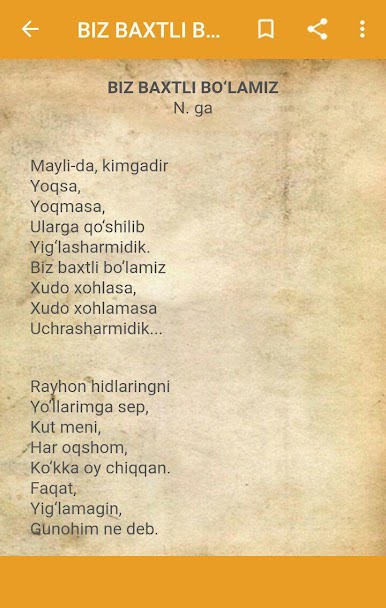 BIZ BAXTLI B...
BIZ BAXTLI BO‘LAMIZ
N. ga
Mayli-da, kimgadir
Yoqsa,
Yoqmasa,
Ularga qo‘shilib
Yig‘lasharmidik.
Biz baxtli bo‘lamiz
Xudo xohlasa,
Xudo xohlamasa
Uchrasharmidik...
Rayhon hidlaringni
Yo‘llarimga sep,
Kut meni,
Har oqshom,
Ko‘kka oy chiqqan.
Faqat,
Yig‘lamagin,
Gunohim ne deb.